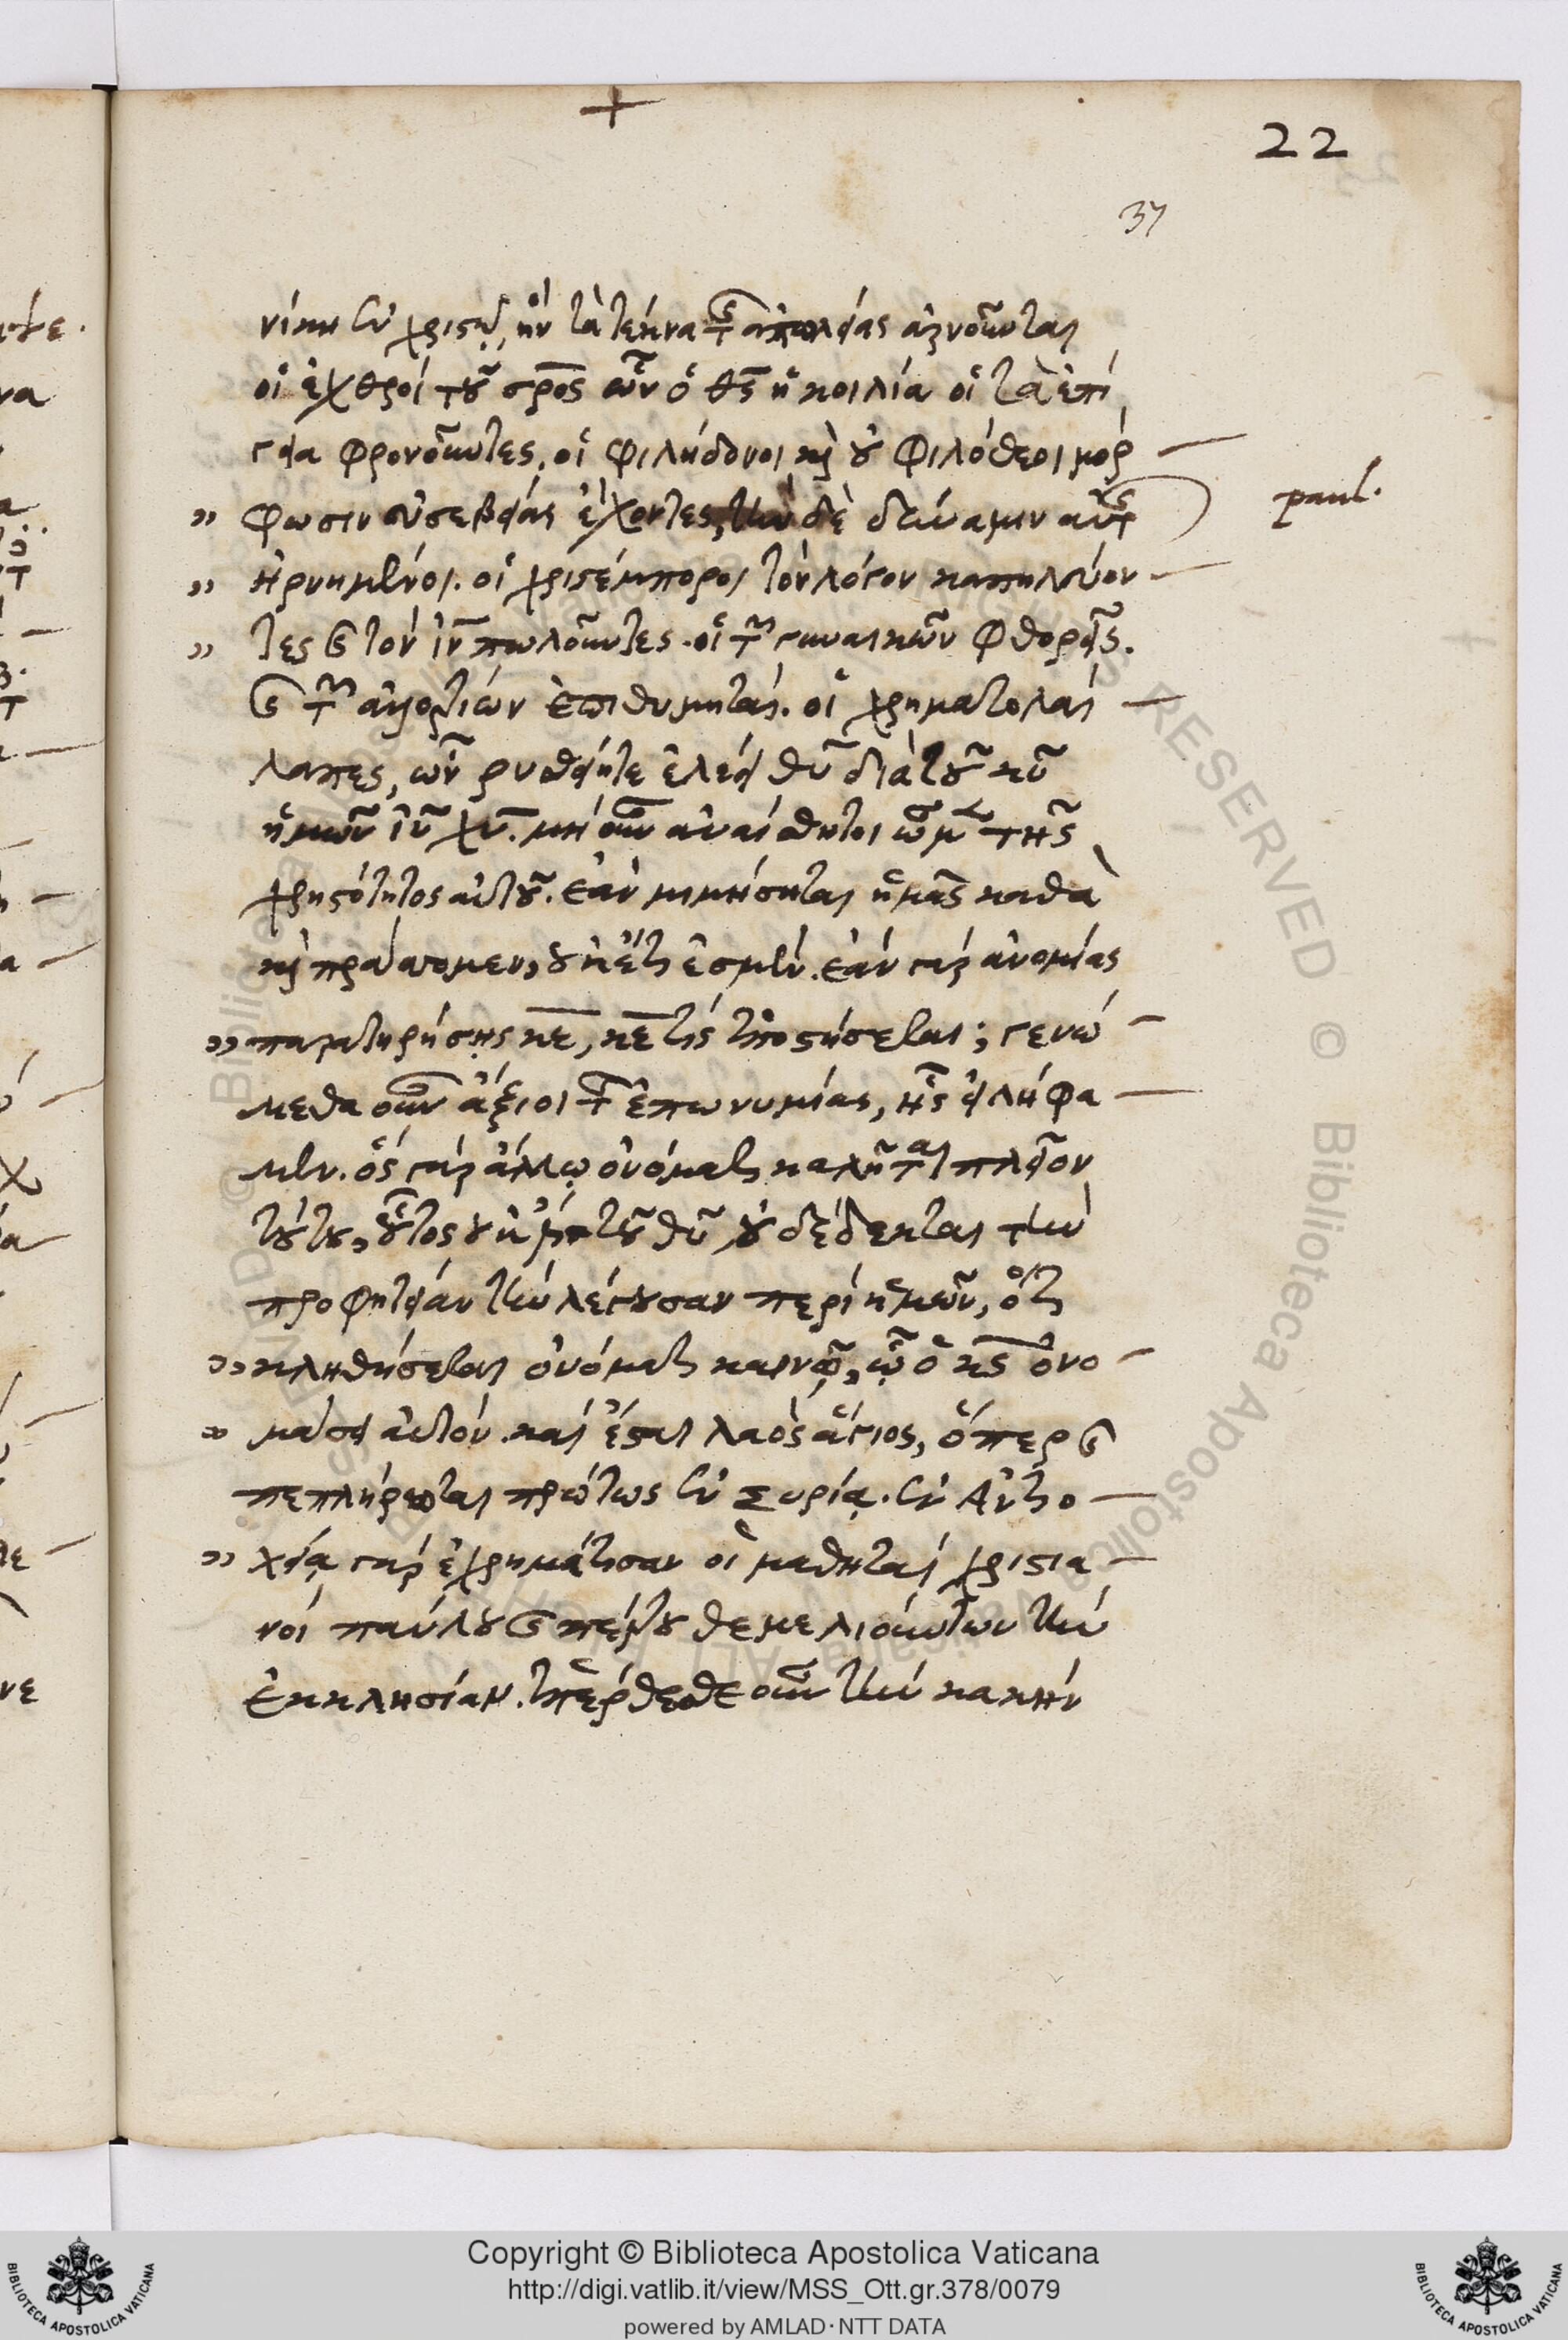 22
37
νίκη ἐν χριστῷ, ἣν τὰ τέκνα τῆς ἀπωλείας ἀρνοῦνται
οἱ ἐχθροί τοῦ σρος ὧν ὁ θς ἡ κοιλία οἱ τὰ ἐπί
γεια φρονοῦντες, οἱ φιλήδονοι καὶ οὐ φιλόθεοι μόρ
φωσιν εὐσεβείας ἔχοντες, τὴν δὲ δύναμιν αὐτῆς
paul.
ἠρνημένοι. οἱ χριστέμποροι τὸν λόγον καπηλεύον
τες καὶ τὸν ιν πωλοῦντες. οἱ τῶν γυναικῶν φθορεῖς.
καὶ τῶν ἀλλοτρίων ἐπιθυμηταί. οἱ χρηματολαί
λαπες, ὧν ῥυσθείητε ἐλέει θυ διὰ τοῦ κυ
ἡμῶν ιυ χυ. μή οὖν ἀναίσθητοι ὦμεν τῆς
χρηστότητος αὐτοῦ. ἐὰν μιμήσηται ἡμᾶς καθὰ
καὶ πράσσομεν, οὐκ ἔτι ἐσμέν. ἐάν γὰρ ἀνομίας
παρατηρήσῃς κε, κε τίς ὑποστήσεται; γενώ
μεθα οὖν ἄξιοι τῆς ἐπωνυμίας, ἧς εἰλήφα
μεν. ὅς γὰρ ἄλλῳ ὀνόματι καλῆται πλεῖον
τούτου, οὗτος οὐκ ἔστι τοῦ θυ οὐ δέδεκται τὴν
προφητείαν τὴν λέγουσαν περί ἡμῶν, ὅτι
κληθήσεται ὀνόματι καινῷ, ᾧ ὁ κς ὀνο
μάσει αὐτόν. καί ἔσται λαὸς ἅγιος, ὅπερ καὶ
πεπλήρωται πρώτως ἐν Συρίᾳ. ἐν Ἀντιο
χείᾳ γὰρ ἐχρημάτισαν οἱ μαθηταί χριστια
νοί παύλου καὶ πέτρου θεμελιούντων τὴν
ἐκκλησίαν. ὑπέρθεσθε οὖν τὴν κακήν
Copyright © Biblioteca Apostolica Vaticana
http://digi.vatlib.it/view/MSS_Ott.gr.378/0079
powered by AMLAD·NTT DATA